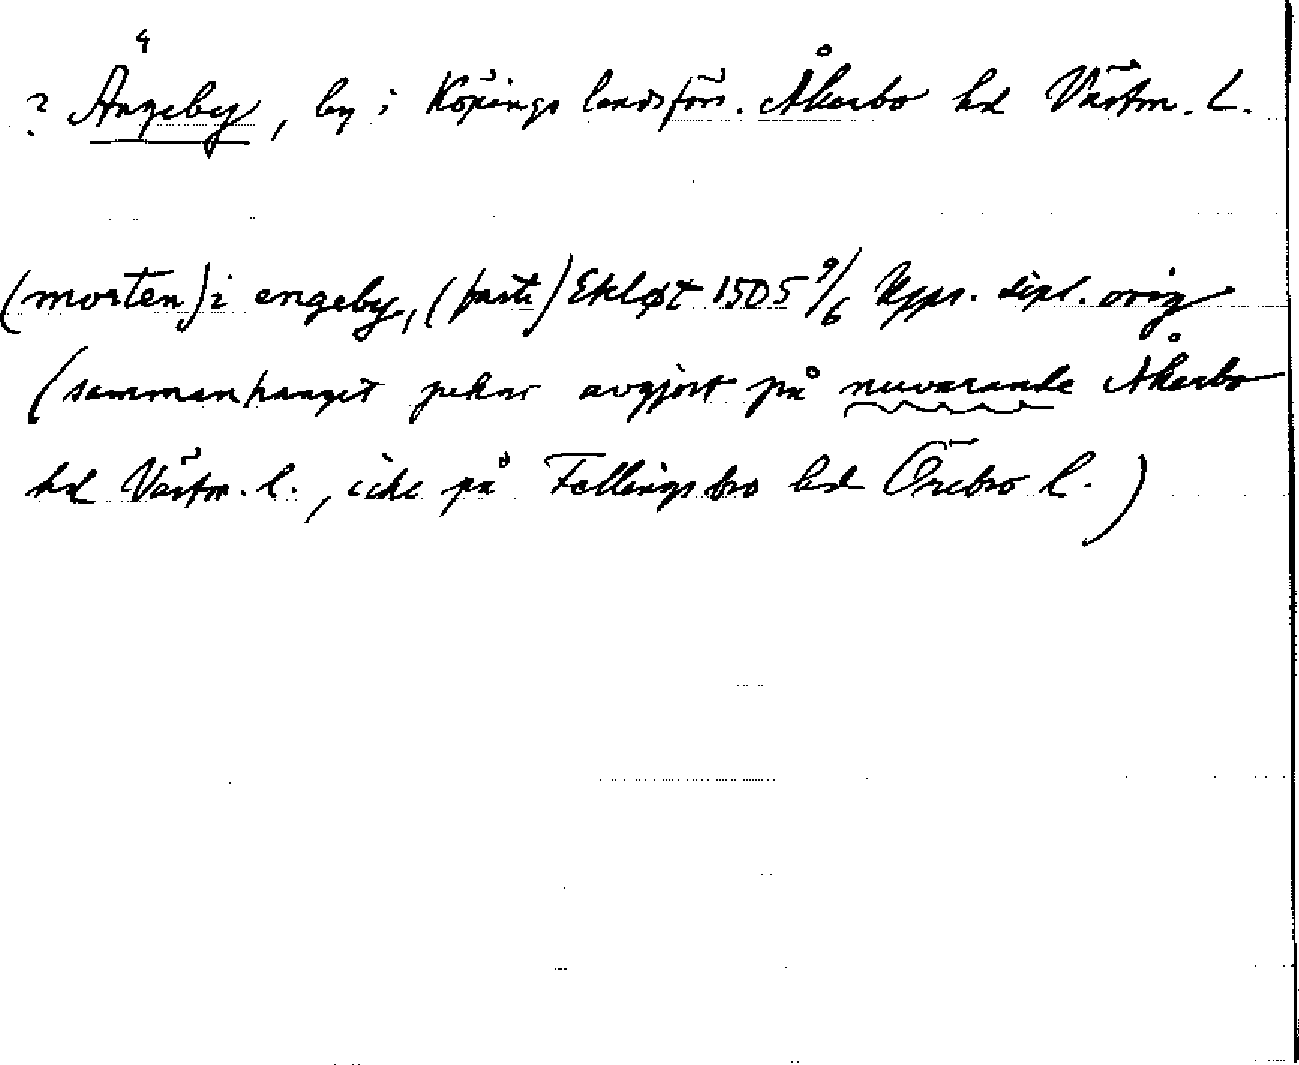 ? Ängeby, by i Köpings landsförs. Åkerbo hd Västm. l.
(morten) i engeby, (faste) Ekløt 1505 9/6 Upps. dipl. orig
(sammanhanget pekar avgjort på nuvarande Åkerbo
hd Västm. l., icke på Fellingsbro hd Örebro l.)